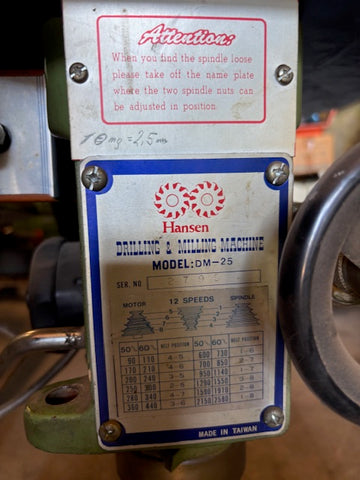 Attention:
When you find the spindle loose
please take off the name plate
where the two spindle nuts can
be adjusted in position.
Hansen
DRILLING & MILLING MACHINE
MODEL: DM-25
SER. NO
MOTOR 12 SPEEDS SPINDLE
50∿ 60∿ BELT POSITION 50∿ 60∿ BELT POSITION
90 110 4-5 600 730 1-6
170 210 4-6 700 850
200 240 3-5 950 1140 1-7
250 300 2-6 1290 1550
280 340 4-7 1970
360 440 3-6 2150 2580 1-8
MADE IN TAIWAN